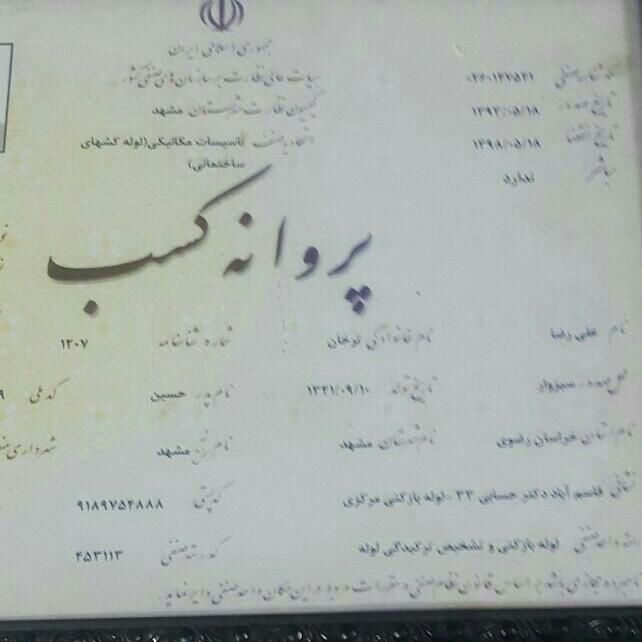 جمهوری اسلامی ایران
هیات عالی نظارت بر سازمان های صنفی کشور
کمیسیون نظارت شهرستان مشهد
اتحادیه صنف تاسیسات مکانیکی(لوله کشهای ساختمانی)
شناسه صنفی
تاریخ صدور ۱۳۹۳/۰۵/۱۸
تاریخ انقضا ۱۳۹۸/۰۵/۱۸
مباشر ندارد
پروانه کسب
نام علی رضا نام خانوادگی نوخان شماره شناسنامه ۱۳۰۷
محل صدور سبزوار تاریخ تولد ۱۳۴۱/۰۹/۱۰ نام پدر حسین کد ملی
نام استان خراسان رضوی نام شهرستان مشهد نام شهر مشهد شهرداری
نشانی قاسم آباد دکتر حسابی ۳۳ -لوله بازکنی مرکزی کدپستی ۹۱۸۹۷۵۴۸۸۸
رسته واحد صنفی لوله بازکنی و تشخیص ترکیدگی لوله کد رسته صنفی ۴۵۳۱۱۳
نامبرده مجاز می باشد بر اساس قانون نظام صنفی و مقررات مربوط در این مکان واحد صنفی دایر نماید.